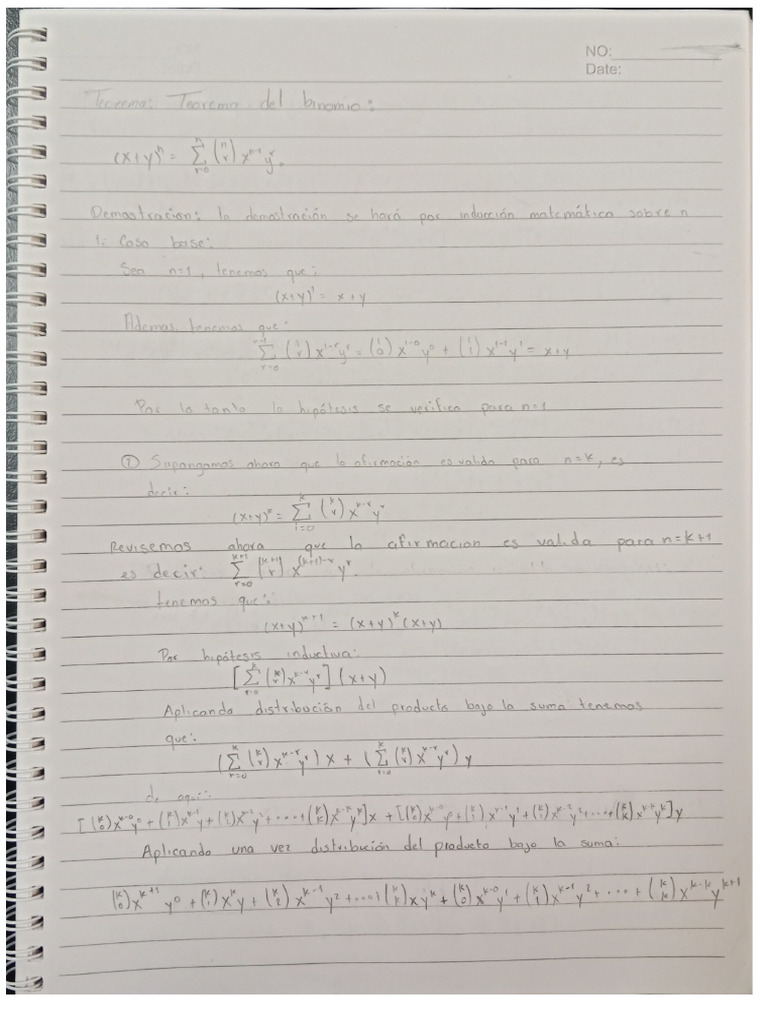 NO:
Date:
Teorema: Teorema del binomio:
(x+y)^n = \sum_{r=0}^{n} \binom{n}{r} x^{n-r} y^r.
Demostracion: la demostración se hará por inducción matemática sobre n
1. Caso base:
Sea n=1, tenemos que:
(x+y)^1 = x+y
Ademas tenemos que:
\sum_{r=0}^{n=1} \binom{1}{r} x^{1-r} y^r = \binom{1}{0} x^{1-0} y^0 + \binom{1}{1} x^{1-1} y^1 = x+y
Por lo tanto la hipótesis se verifica para n=1
① Supongamos ahora que la afirmación es valida para n=k, es
decir:
(x+y)^k = \sum_{i=0}^{k} \binom{k}{r} x^{k-r} y^r
Revisemos ahora que la afirmacion es valida para n=k+1
es decir: \sum_{r=0}^{k+1} \binom{k+1}{r} x^{(k+1)-r} y^r.
tenemos que:
(x+y)^{k+1} = (x+y)^k (x+y)
Por hipótesis inductiva:
[\sum_{r=0}^{k} \binom{k}{r} x^{k-r} y^r] (x+y)
Aplicando distribución del producto bajo la suma tenemos
que:
(\sum_{r=0}^{k} \binom{k}{r} x^{k-r} y^r) x + (\sum_{r=0}^{k} \binom{k}{r} x^{k-r} y^r) y
de aqui:
[\binom{k}{0} x^{k-0} y^0 + \binom{k}{1} x^{k-1} y + \binom{k}{2} x^{k-2} y^2 + .... + \binom{k}{k} x^{k-k} y^k] x + [\binom{k}{0} x^{k-0} y^0 + \binom{k}{1} x^{k-1} y^1 + \binom{k}{2} x^{k-2} y^2 + ... + \binom{k}{k} x^{k-k} y^k] y
Aplicando una vez distribución del producto bajo la suma:
\binom{k}{0} x^{k+1} y^0 + \binom{k}{1} x^k y + \binom{k}{2} x^{k-1} y^2 + ... + \binom{k}{k} x y^k + \binom{k}{0} x^{k-0} y^1 + \binom{k}{1} x^{k-1} y^2 + ... + \binom{k}{k} x^{k-k} y^{k+1}